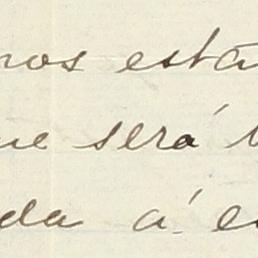 nos está
ue será
da á e